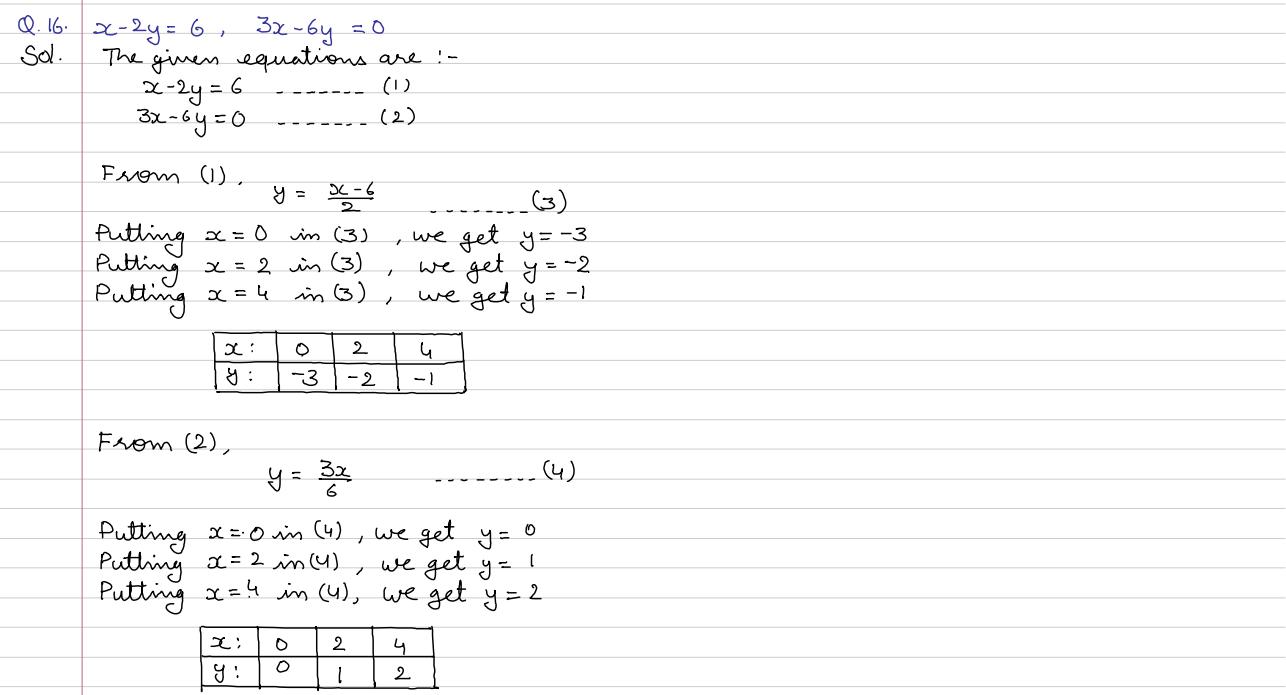 Q.16. x-2y= 6 , 3x-6y =0
Sol. The given equations are :-
x-2y=6 ------- (1)
3x-6y=0 ------- (2)
From (1),
y = x-6/2 --------(3)
Putting x=0 in (3) , we get y=-3
Putting x = 2 in (3) , we get y=-2
Putting x = 4 in (3) , we get y = -1
x: 0 2 4
y: -3 -2 -1
From (2),
y = 3x/6 --------(4)
Putting x=0 in (4) , we get y= 0
Putting x=2 in (4) , we get y= 1
Putting x=4 in (4), we get y=2
x: 0 2 4
y: 0 1 2